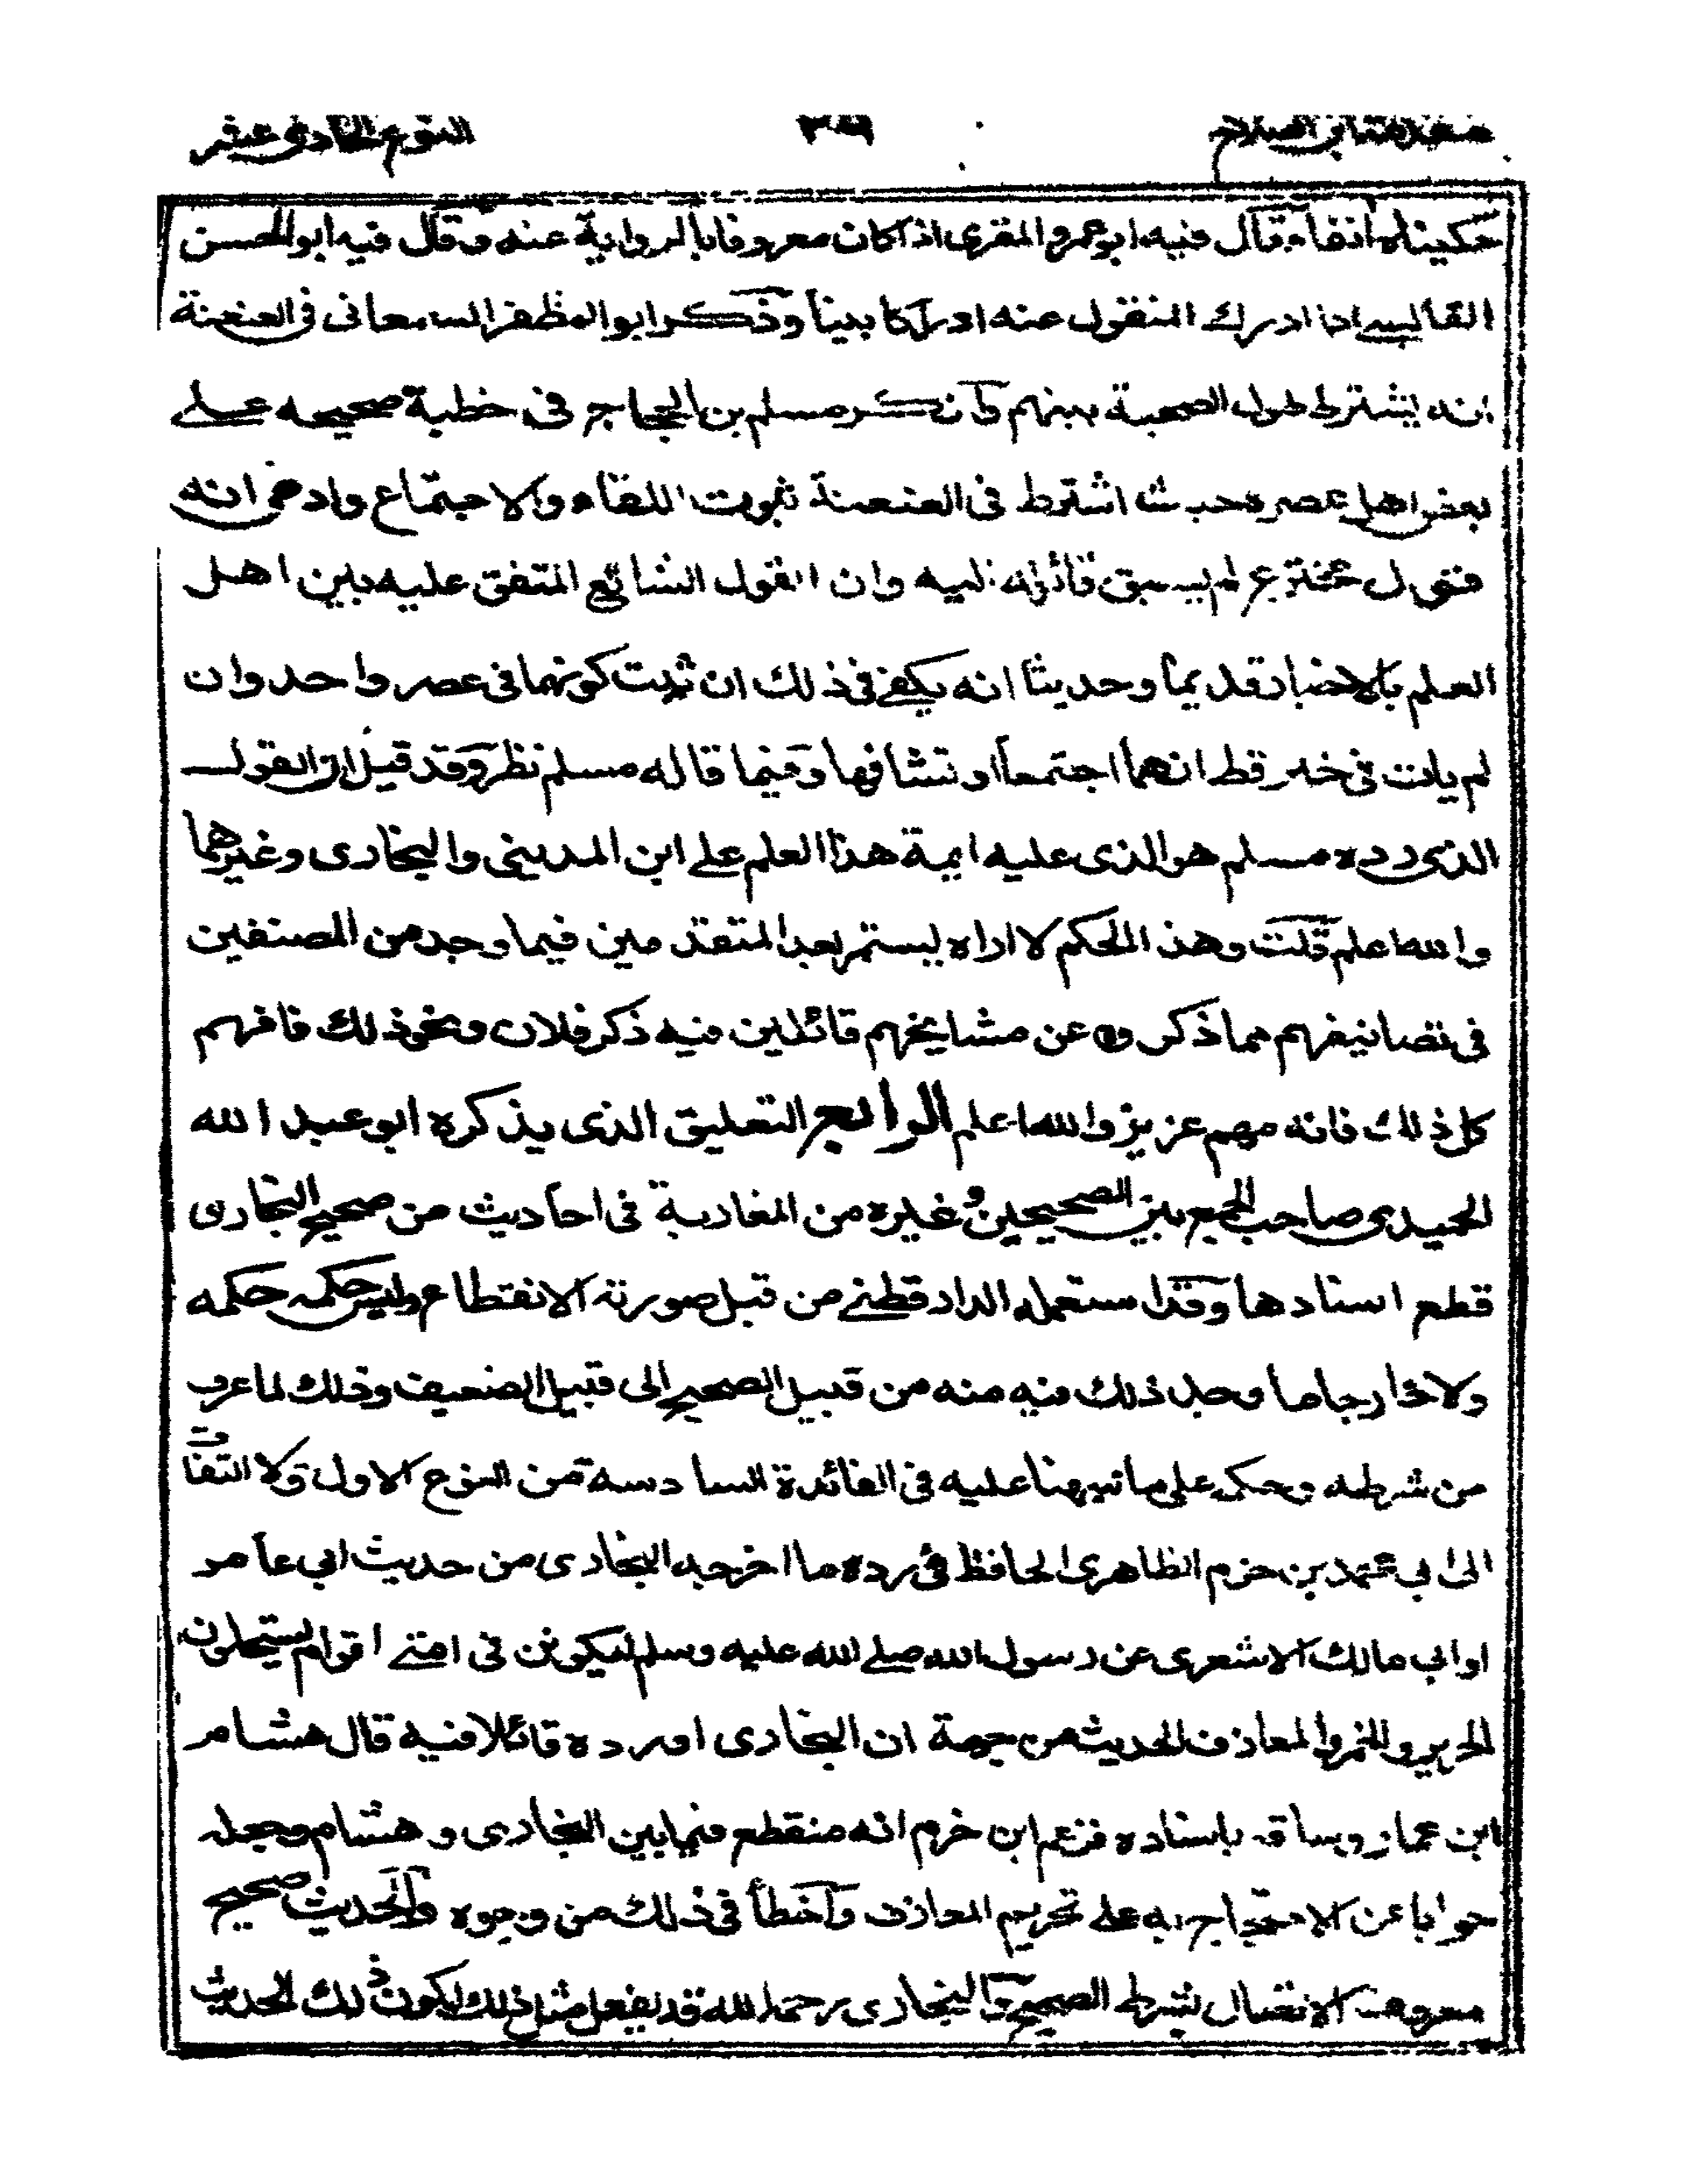 مقدمة ابن الصلاح ٣٩ النوع الحادى عشر
حكيناه أنفا وقال فيه ابو عمرو المقرى اذا كان معروفا بالرواية عنه وقال فيه ابو الحسن
القابسى اذا ادرك المنقول عنه ادراكا بينا وذكر ابو المظفر السمعانى فى العنعنة
انه يشترط طول الصحبة بينهم وانكر مسلم بن الحجاج فى خطبة صحيحه على
بعض اهل عصره حيث اشترط فى العنعنة ثبوت اللقاء والاجتماع وادعى انه
قول مخترع لم يسبق قائله اليه وان القول الشائع المتفق عليه بين اهل
العلم بالاخبار قديما وحديثا انه يكفى فى ذلك ان ثبت كونهما فى عصر واحد وان
لم يات فى خبر قط انهما اجتمعا او تشافها وفيما قاله مسلم نظر وقد قيل ان القول
الذى رده مسلم هو الذى عليه ايمة هذا العلم على ابن المدينى والبخارى وغيرهما
والله اعلم قلت وهذا الحكم لا اراه يستمر بعد المتقدمين فيما وجد من المصنفين
فى تصانيفهم مما ذكروه عن مشايخهم قائلين فيه ذكر فلان ونحو ذلك فافهم
كل ذلك فانه مهم عزيز والله اعلم الرابع التعليق الذى يذكره ابو عبد الله
الحميدى صاحب الجمع بين الصحيحين وغيره من المغاربة فى احاديث من صحيح البخارى
قطع اسنادها وقد استعمله الدارقطنى من قبل صورته الانقطاع وليس حكمه حكمه
ولا خارجا ما وجد ذلك فيه منه من قبيل الصحيح الى قبيل الضعيف وذلك لما عرف
من شرطه وحكمه على ما نبهنا عليه فى الفائدة السادسة من النوع الاول ولا التفات
الى ابي محمد بن حزم الظاهرى الحافظ فى رده ما اخرجه البخارى من حديث ابي عامر
او ابي مالك الاشعرى عن رسول الله صلى الله عليه وسلم ليكونن فى امتى اقوام يستحلون
الحرير والخمر والمعازف الحديث من جهة ان البخارى اورده قائلا فيه قال هشام
ابن عمار وساقه باسناده فزعم ابن حزم انه منقطع فيما بين البخارى و هشام وجعله
جوابا عن الاحتجاج به على تحريم المعازف واخطأ فى ذلك من وجوه والحديث صحيح
معروف الاتصال بشرط الصحيح والبخارى رحمه الله قد يفعل مثل ذلك لكون ذلك الحديث